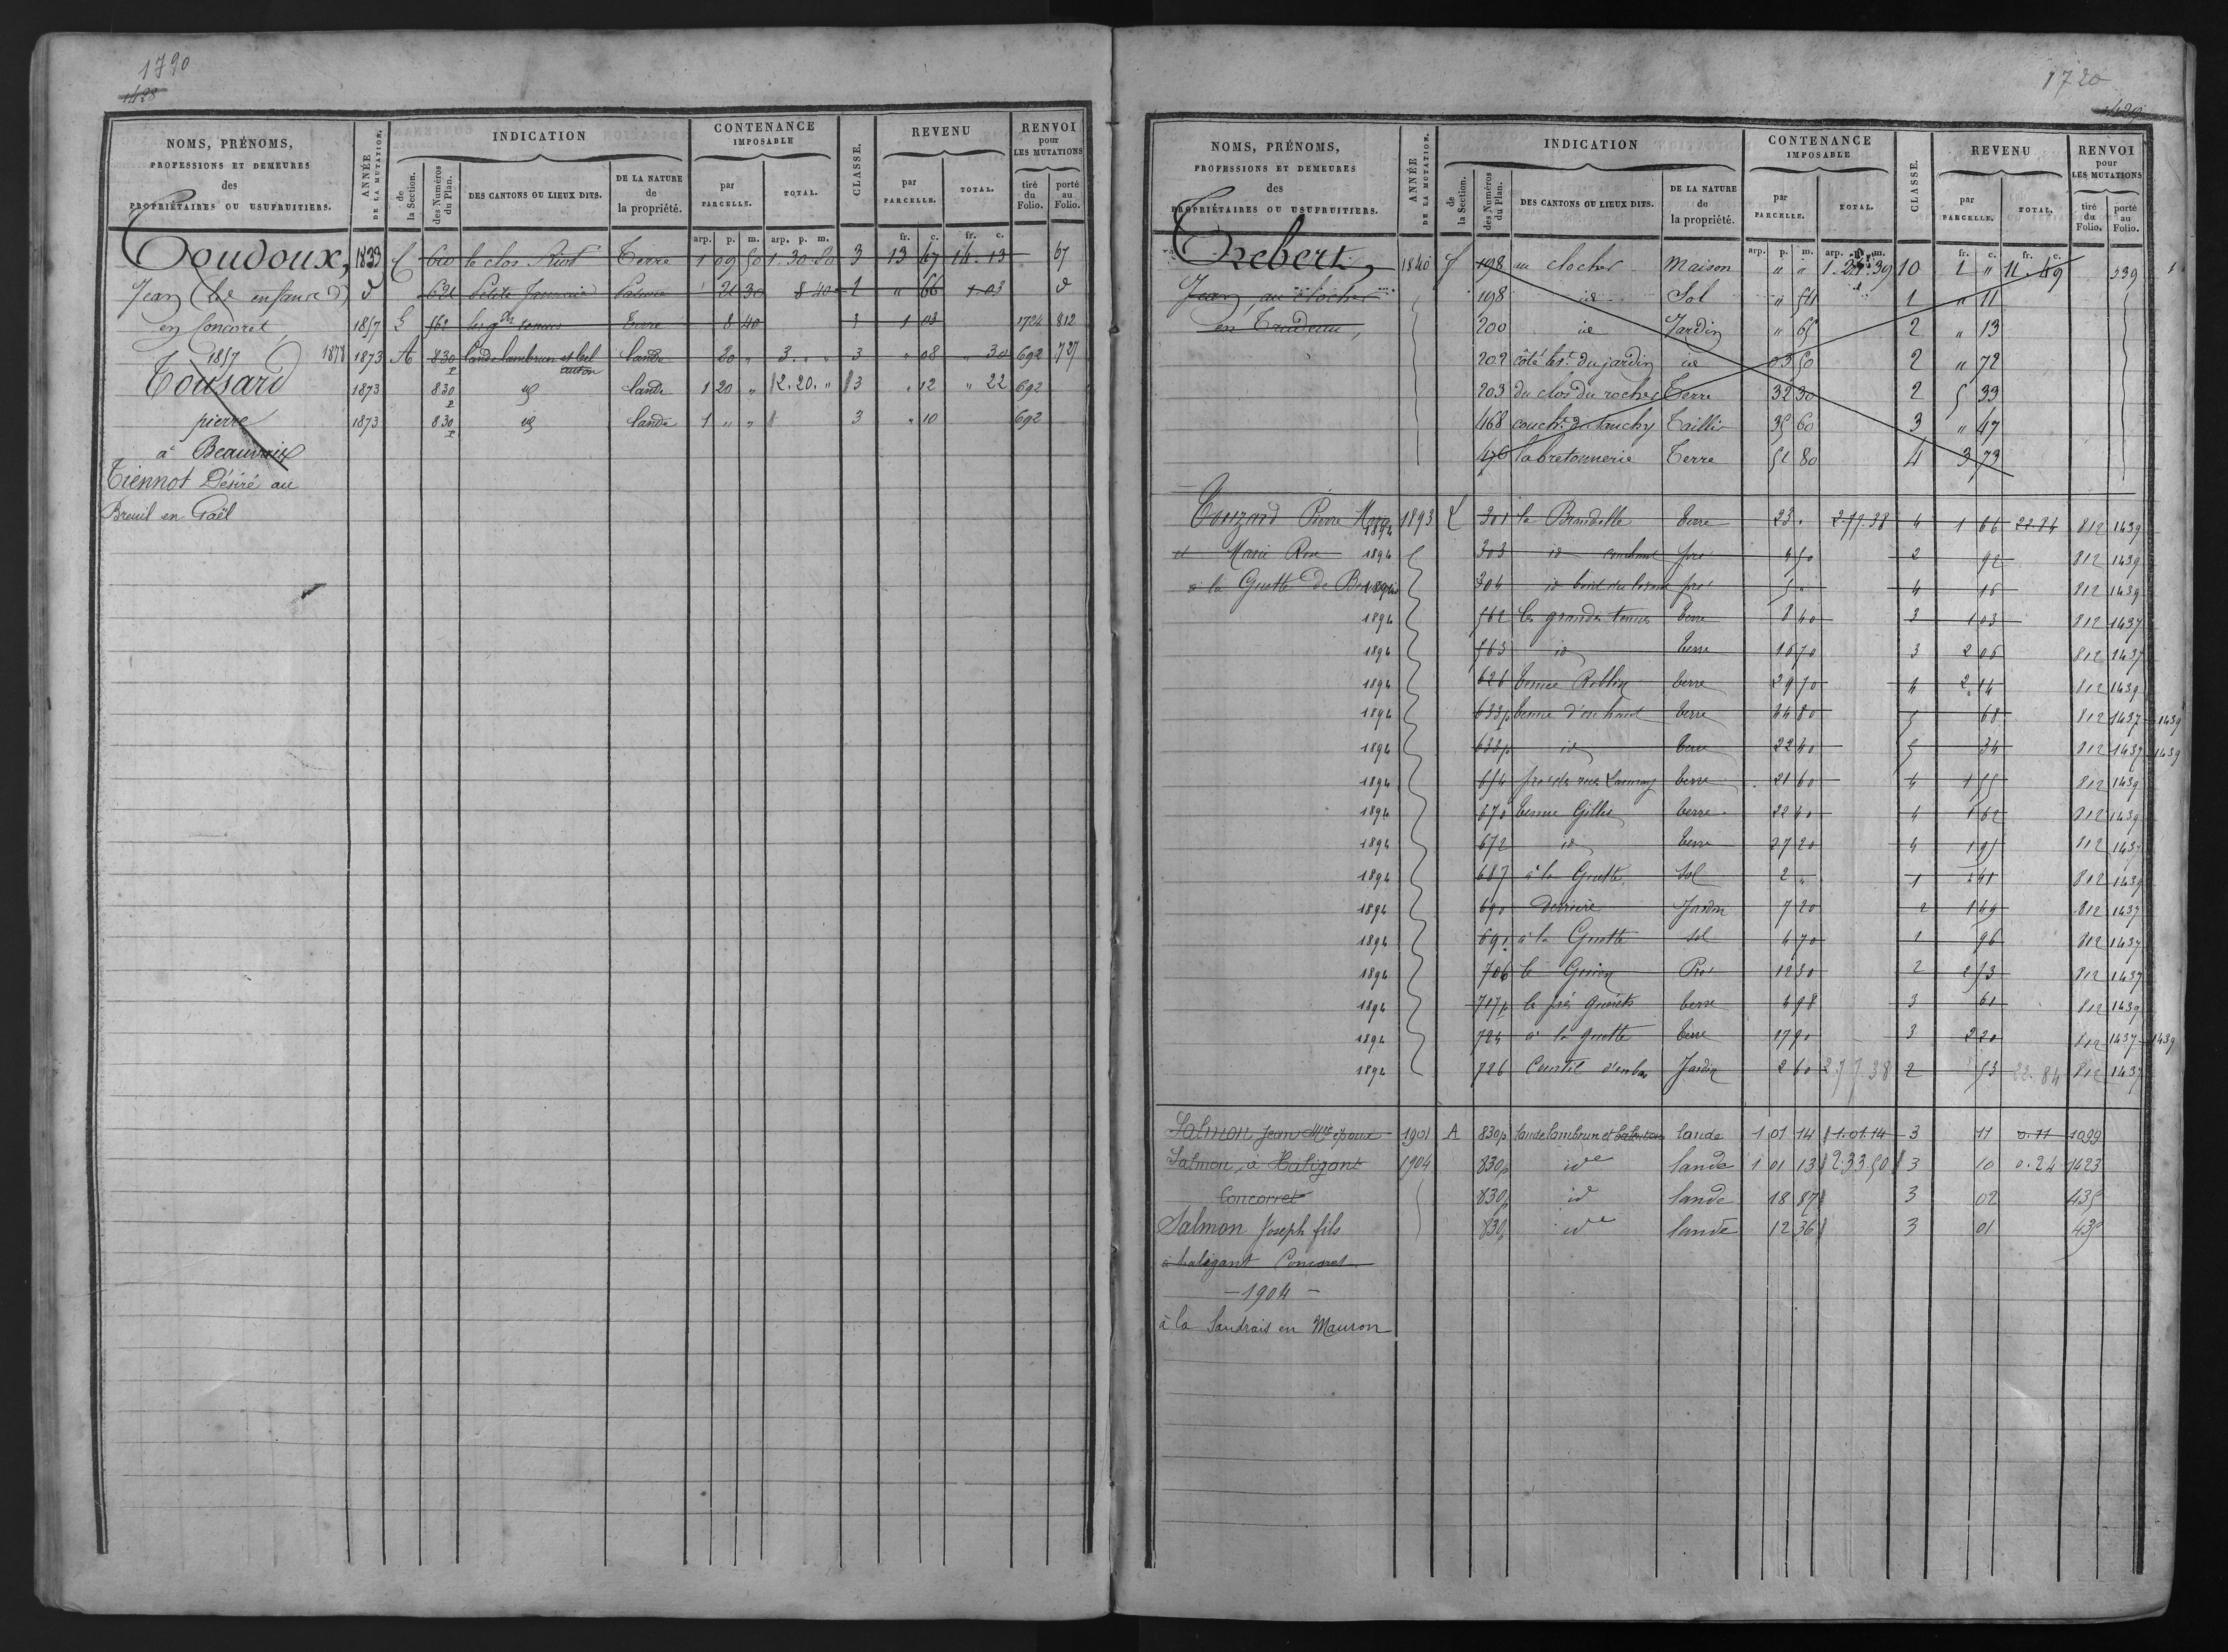 1790
1428
NOMS, PRÉNOMS, PROFESSIONS ET DEMEURES des PROPRIÉTAIRES OU USUFRUITIERS.
ANNÉE DE LA MUTATION.
INDICATION
de la Section.
des Numéros du Plan.
DES CANTONS OU LIEUX DITS.
DE LA NATURE de la propriété.
CONTENANCE IMPOSABLE
par PARCELLE.
TOTAL.
CLASSE.
REVENU
par PARCELLE.
TOTAL.
RENVOI pour LES MUTATIONS
tiré du Folio.
porté au Folio.
arp. p. m. arp. p. m. fr. c. fr. c.
Toudoux, 1839 620 le clos Riot Terre 1 09 50 1.30.80 3 13 47 14.13 67
Jean 621 Petite Pature 21 30 8 40 1 " 66 1.03
en Concoret 1857 562 les gdes tenues Terre 8 40 3 1 03 1724 812
1857 1878 1873 A 830 lande lambrun et bel lande 20 " 3. " " 3 " 08 " 30 692 727
auton
Tousard 1873 830 id lande 1 20 " 2.20. " 3 " 12 " 22 692
pierre 1873 830 id lande 1 " " 3 " 10 692
à Beauvais
Tiennot Désiré au
Breuil en Gaël
1720
1429
NOMS, PRÉNOMS, PROFESSIONS ET DEMEURES des PROPRIÉTAIRES OU USUFRUITIERS.
ANNÉE DE LA MUTATION.
INDICATION
de la Section.
des Numéros du Plan.
DES CANTONS OU LIEUX DITS.
DE LA NATURE de la propriété.
CONTENANCE IMPOSABLE
par PARCELLE.
TOTAL.
CLASSE.
REVENU
par PARCELLE.
TOTAL.
RENVOI pour LES MUTATIONS
tiré du Folio.
porté au Folio.
arp. p. m. arp. p. m. fr. c. fr. c.
Trebert, 1840 198 au clocher Maison " " 10 1 " 11.49 539
Jean, au clocher 198 id Sol " 54 1 " 11
en Trudeau, 200 id Jardin " 65 2 " 13
202 côté est du jardin id 03 50 2 " 72
203 du clos du rocher Terre 32 30 2 5 33
168 Taillis 35 60 3 " 47
176 la bretonnerie Terre 51 80 4 3 73
Touzard Pierre 1894 1893 301 la Brandelle terre 23 " 2.77.38 4 1 66 22.84 812 1439
et Marie Rose 1894 303 id couchant pré 4 50 2 92 812 1439
à la Guette de 1894 304 id pré 5 " 4 16 812 1439
1894 562 les grandes tenues terre 8 40 3 1 03 812 1437
1894 563 id terre 16 70 3 2 06 812 1437
1894 626 tenue Roblin terre 29 70 4 2 14 812 1439
1894 633p tenue d'en haut terre 34 80 5 68 812 1437 1439
1894 633p id terre 22 40 5 34 812 1437 1439
1894 654 terre 21 60 4 1 55 812 1439
1894 670 tenue Gilles terre 22 40 4 1 62 812 1439
1894 672 id terre 27 20 4 1 95 812 1437
1894 687 à la Guette Sol 2 " 1 41 812 1439
1894 690 derriere Jardin 7 20 2 1 49 812 1437
1894 691 à la Guette sol 4 70 1 96 812 1437
1894 706 le Pré 12 30 2 2 53 812 1437
1894 717p le pré terre 4 98 3 61 812 1439
1894 724 à la guette terre 17 90 3 2 20 812 1437 1439
1894 726 Courtil d'en bas Jardin 2 60 277.38 2 53 22.84 812 1437
Salmon Jean Mie époux 1901 A 830p lande lambrun et lande 1 01 14 1.01.14 3 11 0.11 1099
Salmon, à Haligant 1904 830p ide lande 1 01 13 2.33.50 3 10 0.24 1423
Concorret 830p id lande 18 87 3 02 435
Salmon Joseph fils 830p ide lande 12 36 3 01 435
à haligant Concoret
- 1904 -
à la Saudrais en Mauron